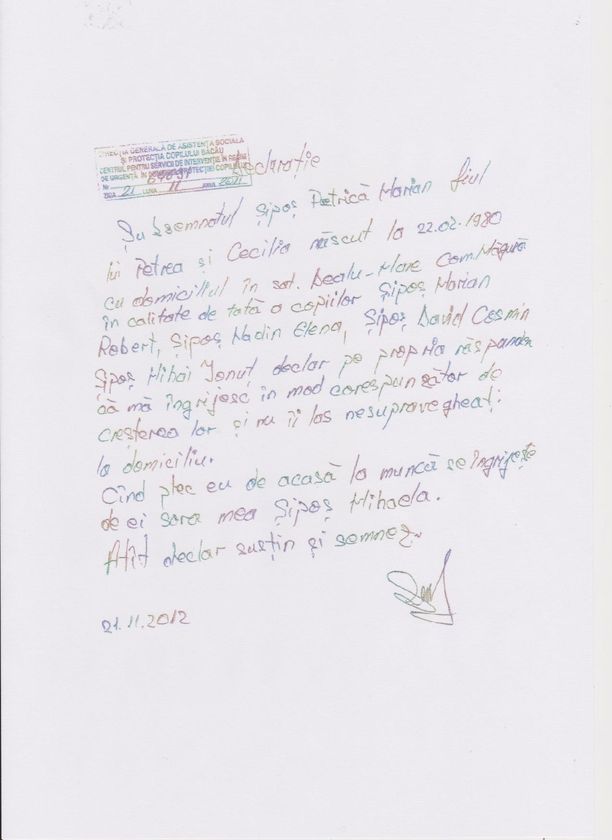 DIRECȚIA GENERALĂ DE ASISTENȚA SOCIALA
ȘI PROTECȚIA COPILULUI BACĂU
CENTRUL PENTRU SERVICII DE INTERVENȚIE ÎN REGIM
DE URGENȚĂ ÎN DOMENIUL PROTECȚIEI COPILULUI
Nr.
ZIUA 21 LUNA 11 ANUL
Declarație
Subsemnatul Șipoș Petrică Marian fiul
lui Petrea și Cecilia născut la 22.02.1980
cu domiciliul în sat. Dealu-Mare Com. Măgura
în calitate de tată a copiilor Șipoș Marian
Robert, Șipoș Nadin Elena, Șipoș David Cosmin
Șipoș Mihai Ionuț declar pe propria răspundere
că mă îngrijesc în mod corespunzător de
creșterea lor și nu îi las nesupravegheați
la domiciliu.
Cînd plec eu de acasă la muncă se îngrijește
de ei sora mea Șipoș Mihaela.
Atît declar susțin și semnez.
21.11.2012